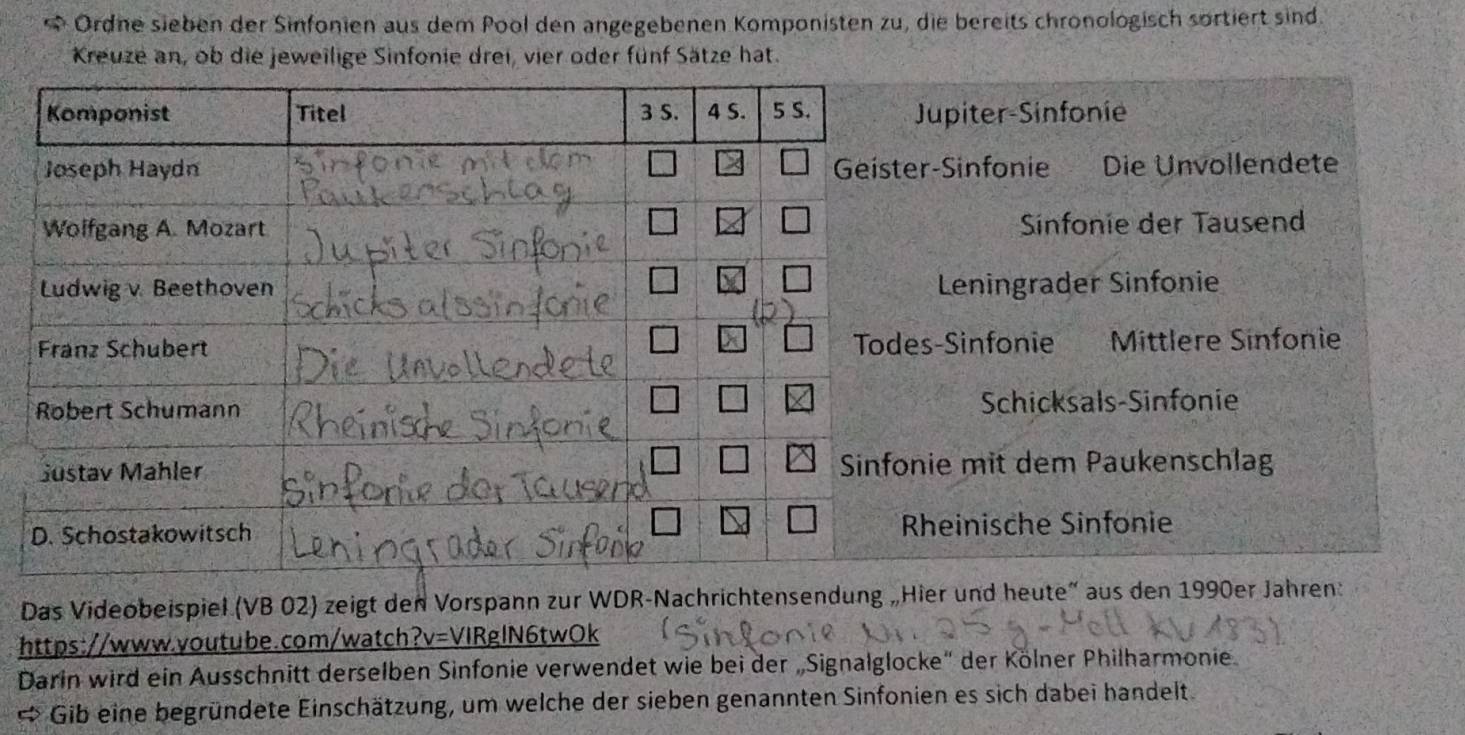 ⇨ Ordne sieben der Sinfonien aus dem Pool den angegebenen Komponisten zu, die bereits chronologisch sortiert sind.
Kreuze an, ob die jeweilige Sinfonie drei, vier oder fünf Sätze hat.
Komponist Titel 3 S. 4 S. 5 S. Jupiter-Sinfonie
Joseph Haydn Sinfonie mit dem Paukenschlag Geister-Sinfonie Die Unvollendete
Wolfgang A. Mozart Jupiter Sinfonie Sinfonie der Tausend
Ludwig v. Beethoven Schicksalssinfonie Leningrader Sinfonie
Franz Schubert Die Unvollendete (2) Todes-Sinfonie Mittlere Sinfonie
Robert Schumann Rheinische Sinfonie Schicksals-Sinfonie
Gustav Mahler Sinfonie der Tausend Sinfonie mit dem Paukenschlag
D. Schostakowitsch Leningrader Sinfonie Rheinische Sinfonie
Das Videobeispiel (VB 02) zeigt den Vorspann zur WDR-Nachrichtensendung „Hier und heute“ aus den 1990er Jahren:
https://www.youtube.com/watch?v=VIRglN6twOk (Sinfonie Nr. 25 g-Moll KV 183)
Darin wird ein Ausschnitt derselben Sinfonie verwendet wie bei der „Signalglocke“ der Kölner Philharmonie.
⇨ Gib eine begründete Einschätzung, um welche der sieben genannten Sinfonien es sich dabei handelt.